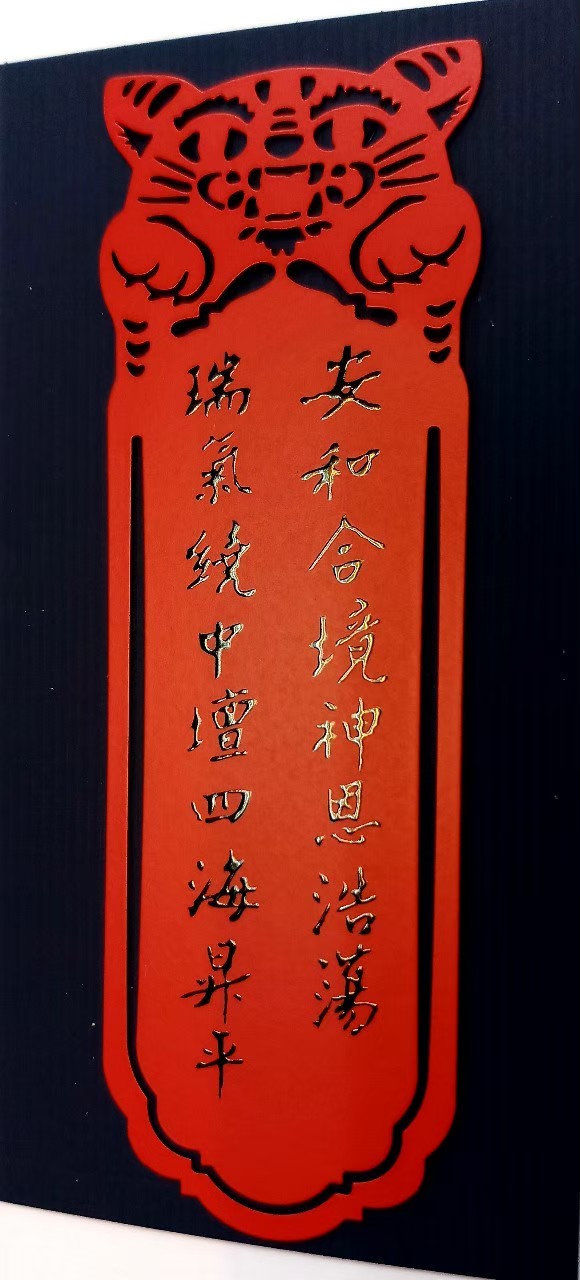 安和合境神恩浩蕩
瑞氣繞中壇四海昇平